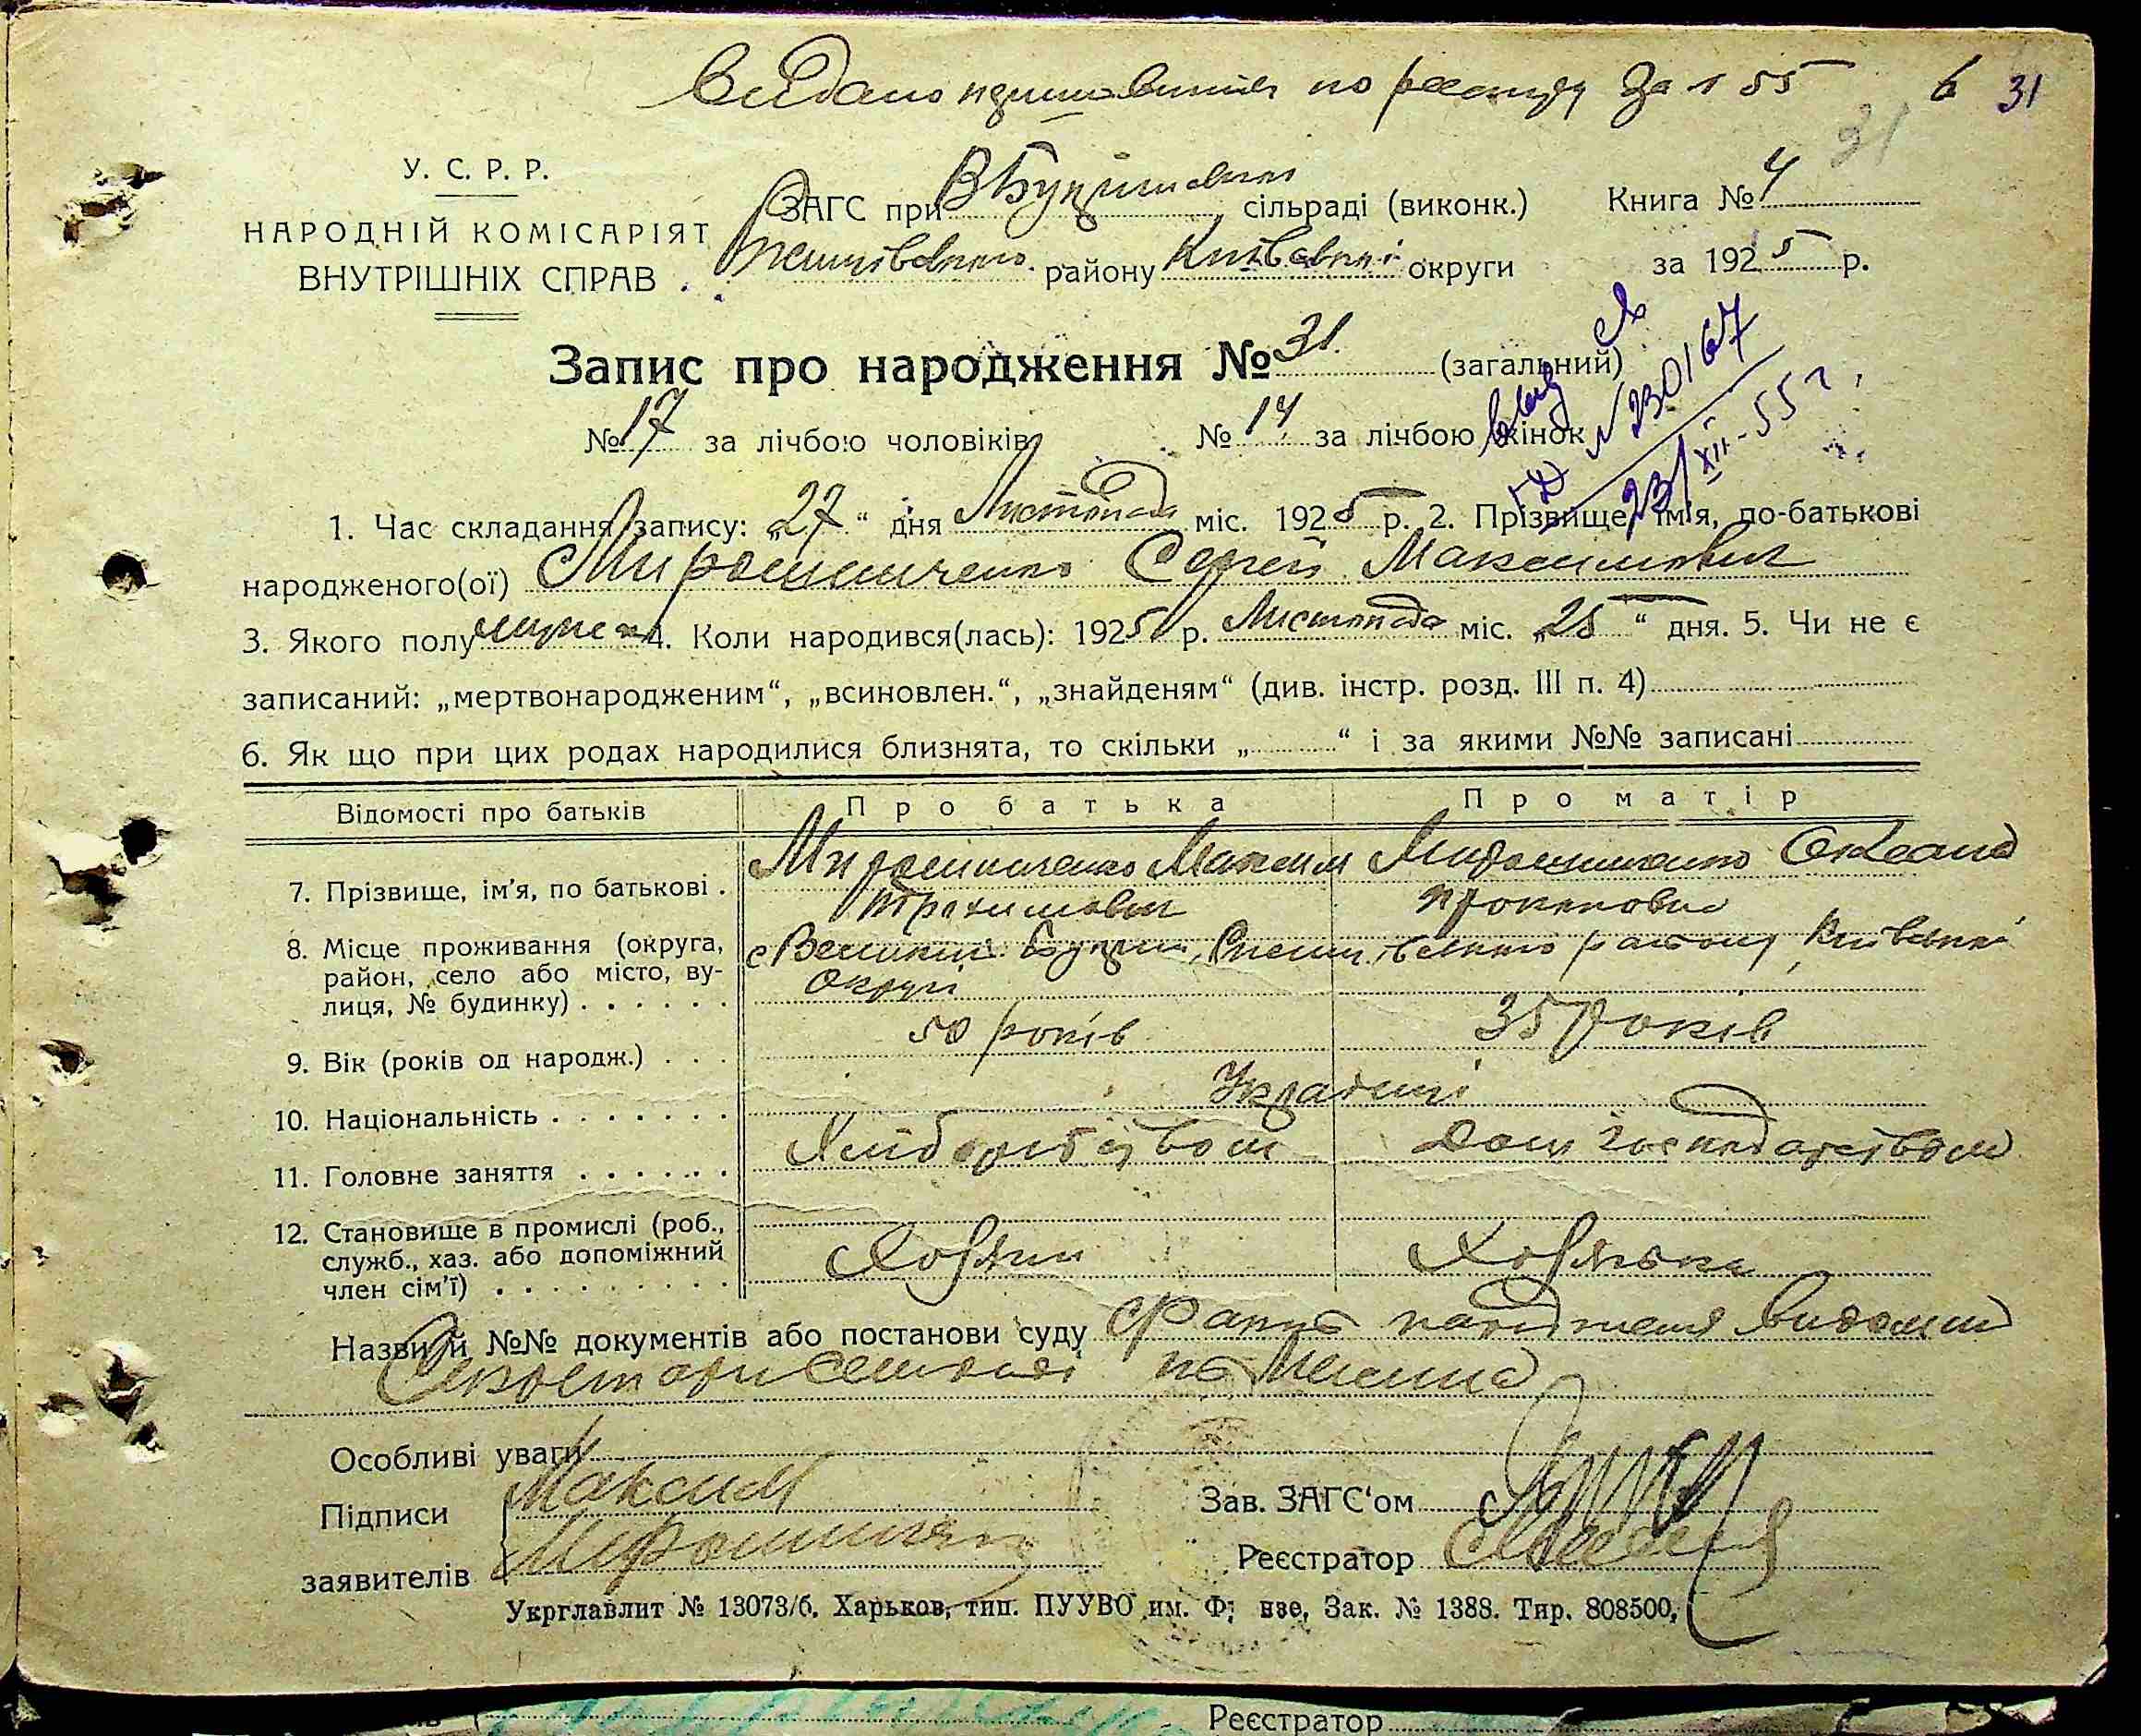 Видано по реєстру За 1 55 6 31
31
У. С. Р. Р.
НАРОДНІЙ КОМІСАРІЯТ
ВНУТРІШНІХ СПРАВ
ЗАГС при сільраді (виконк.) Книга № 4
району Київської округи за 1925 р.
Запис про народження № 31 (загальний)
№ 17 за лічбою чоловіків № 14 за лічбою жінок
№ 230167
23/XII-55 г.
1. Час складання запису: „27“ дня Листопада міс. 1925 р. 2. Прізвище, ім'я, по-батькові
народженого(ої) Мирошниченко Сергей Максимович
3. Якого полу 4. Коли народився(лась): 1925 р. Листопада міс. „25“ дня. 5. Чи не є
записаний: „мертвонародженим“, „всиновлен.“, „знайденям“ (див. інстр. розд. III п. 4)
6. Як що при цих родах народилися близнята, то скільки „ “ і за якими №№ записані
Відомості про батьків Про батька Про матір
7. Прізвище, ім'я, по батькові . Мирошниченко Максим Мирошниченко
Трохимович
8. Місце проживання (округа, с Великий району Київської
район, село або місто, ву- округи
лиця, № будинку) . . . . . .
9. Вік (років од народж.) . . . 50 років 35 років
10. Національність . . . . . . . Українці
11. Головне заняття . . . . . . Хліборобством Дом господарством
12. Становище в промислі (роб.,
служб., хаз. або допоміжний Хозяин Хозяйка
член сім'ї) . . . . . . . . .
Назви й №№ документів або постанови суду Факт народження
Особливі уваги
Підписи Максим Зав. ЗАГС'ом
заявителів Мирошниченко Реєстратор
Укрглавлит № 13073/б. Харьков, тип. ПУУВО им. Ф нзе, Зак. № 1388. Тир. 808500,
Реєстратор